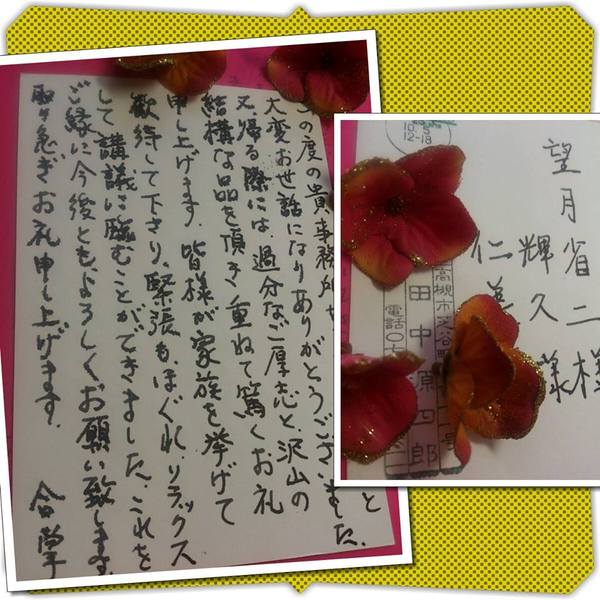 の度の貴事務所
大変お世話になりありがとうございました。
又帰る際には、過分なご厚志と、沢山の
結構な品を頂き重ねて篤くお礼
申し上げます。皆様が家族を挙げて
歓待して下さり。緊張もほぐれ、リラックス
して講議に臨むことができました。これを
ご縁に今後ともよろしくお願い致します。
取り急ぎお礼申し上げます。 合掌
と
望月省二様
輝久様
仁美
10.5
12-18
高槻市芝谷町
田中源四郎
電話〇
号